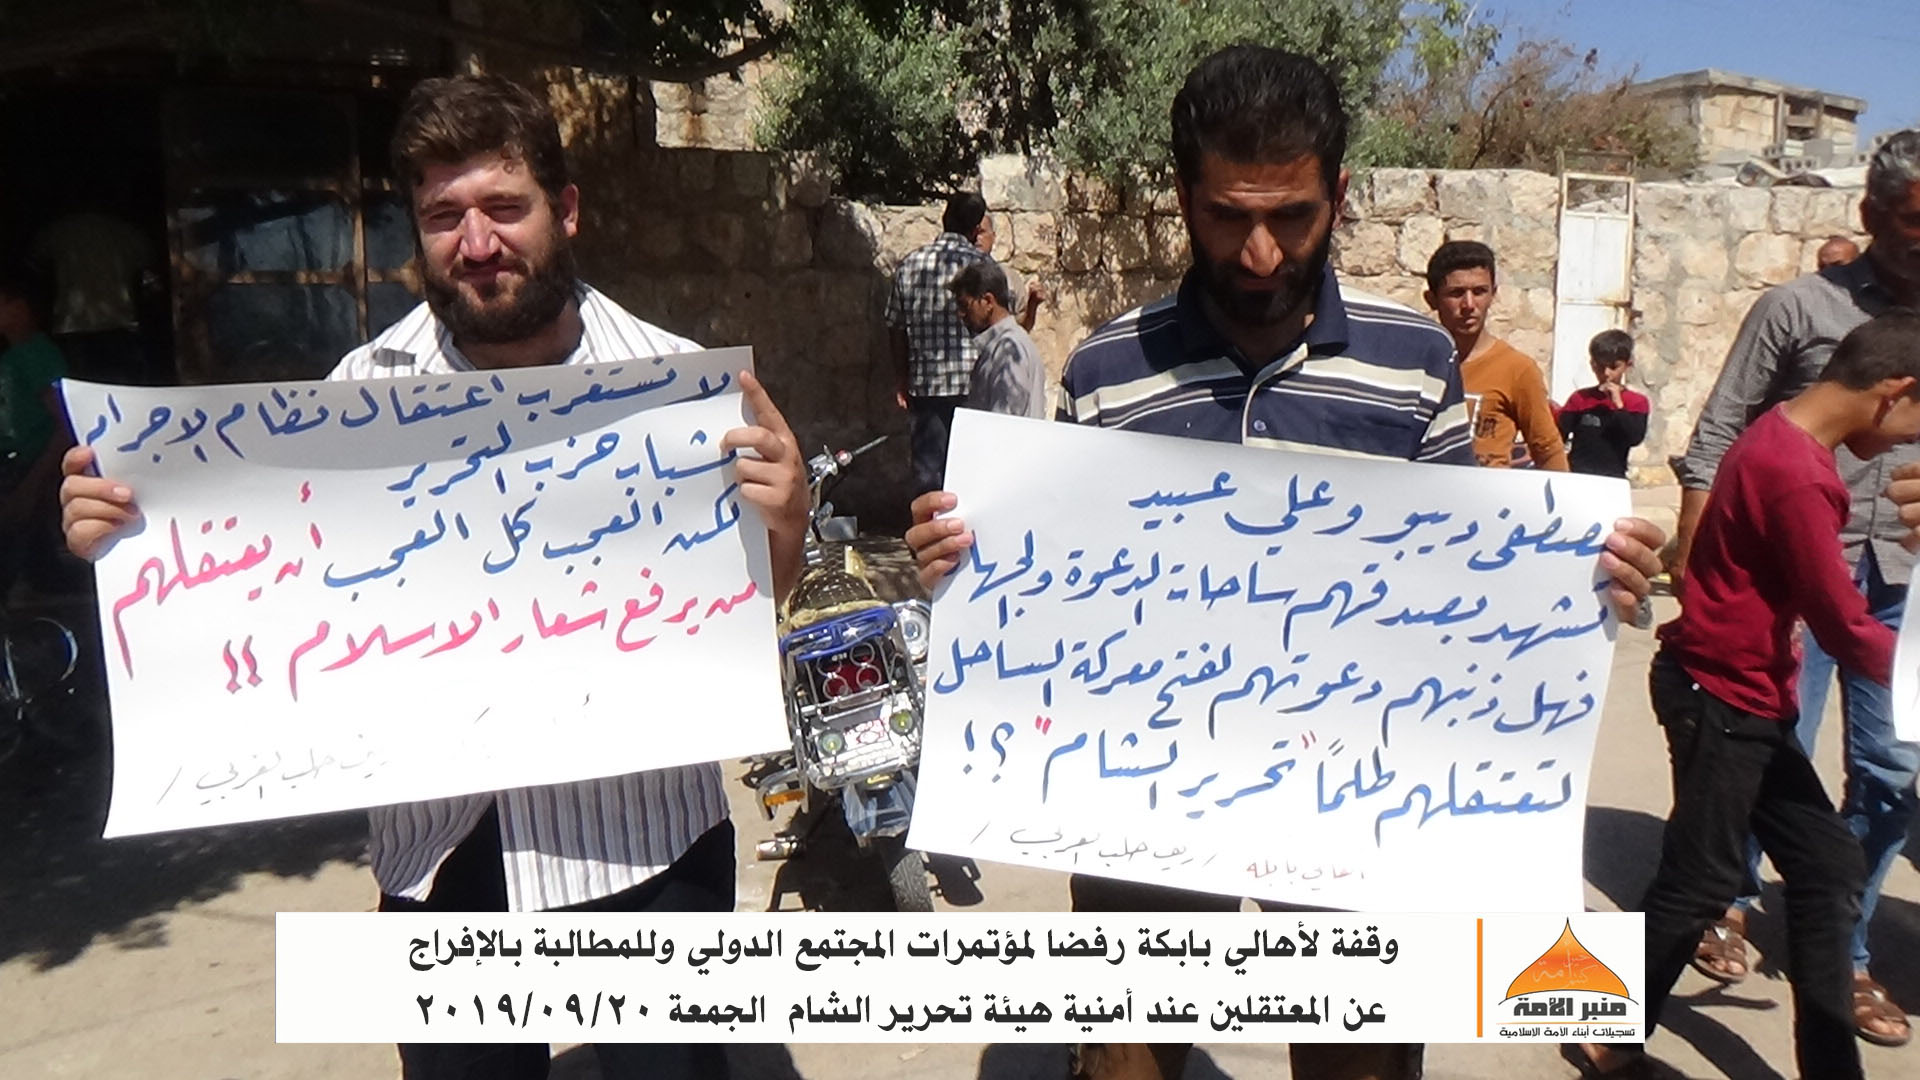 لا نستغرب اعتقال نظام الاجرام
شباب حزب التحرير
لكن العجب كل العجب أن يعتقلهم
من يرفع شعار الاسلام !!
ريف حلب الغربي /
مصطفى ديبو وعلي عبيد
تشهد بصدقهم ساحات الدعوة والجهاد
فهل ذنبهم دعوتهم لفتح معركة الساحل
لتعتقلهم ظلماً "تحرير الشام" ؟!
اهالي بابكة / ريف حلب الغربي /
وقفة لأهالي بابكة رفضا لمؤتمرات المجتمع الدولي وللمطالبة بالإفراج
عن المعتقلين عند أمنية هيئة تحرير الشام الجمعة ٢٠١٩/٠٩/٢٠
منبر الأمة
تسجيلات أبناء الأمة الاسلامية